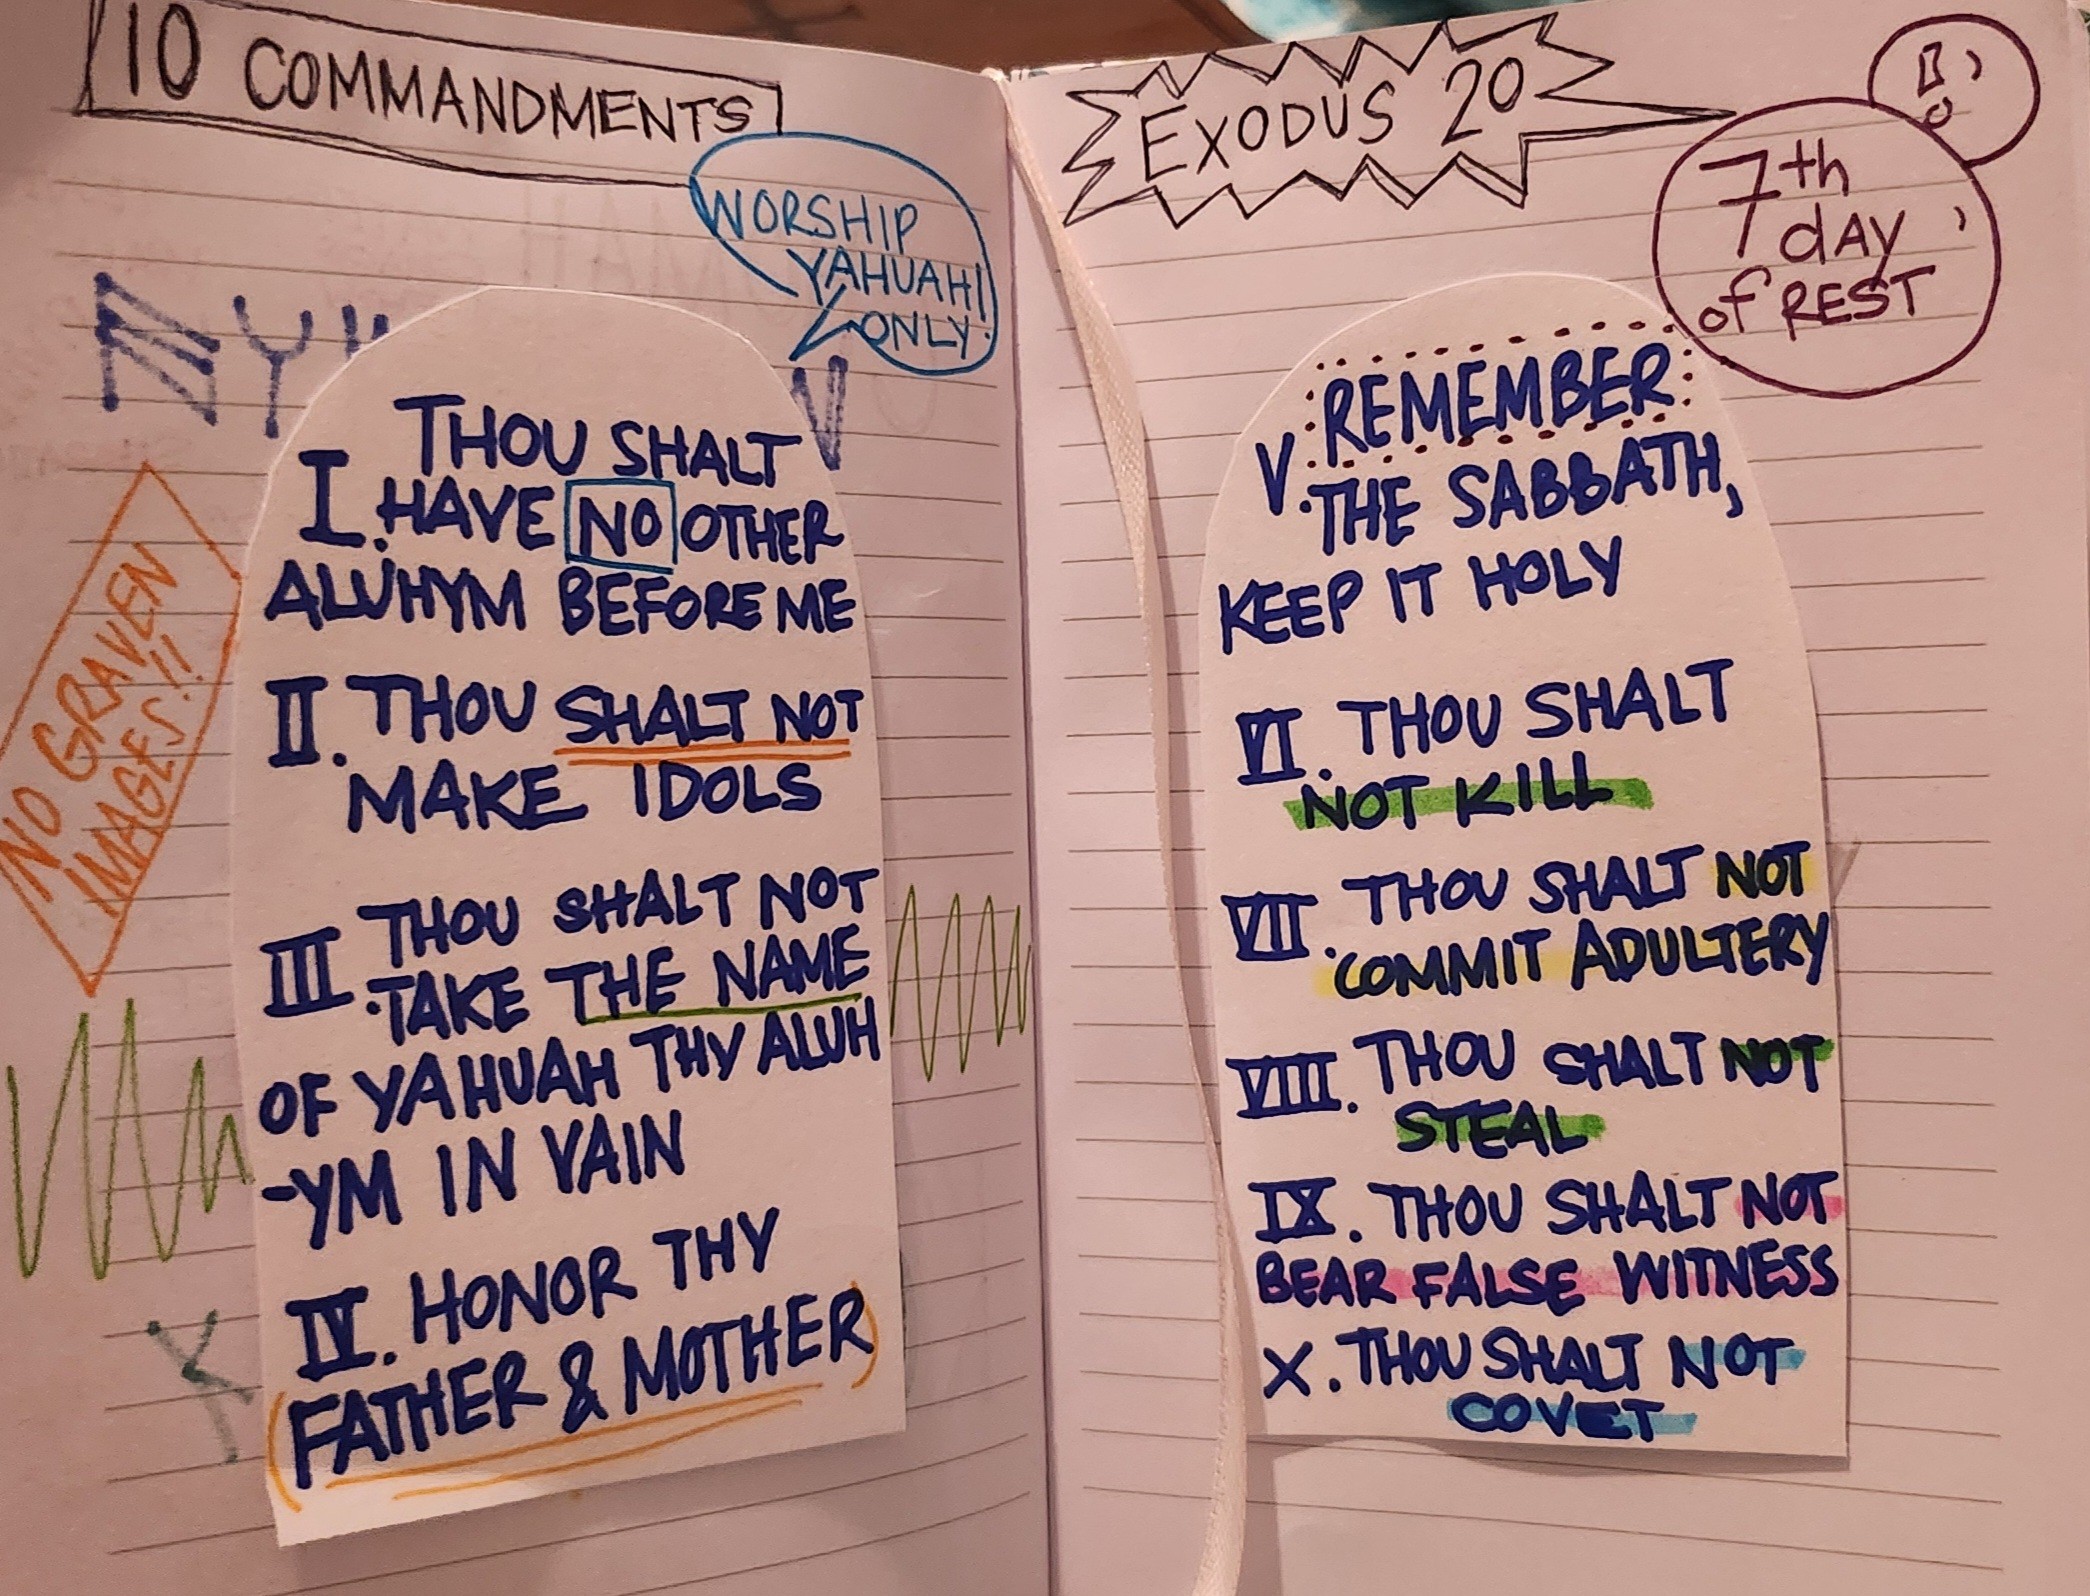 10 COMMANDMENTS
WORSHIP
YAHUAH!
ONLY.
NO GRAVEN
IMAGES!!
THOU SHALT
I. HAVE NO OTHER
ALUHYM BEFORE ME
II. THOU SHALT NOT
MAKE IDOLS
III. THOU SHALT NOT
TAKE THE NAME
OF YAHUAH THY ALUH
-YM IN VAIN
IV. HONOR THY
(FATHER & MOTHER)
EXODUS 20
7th
dAY
of REST
V. REMEMBER
THE SABBATH,
KEEP IT HOLY
VI. THOU SHALT
NOT KILL
VII. THOU SHALT NOT
COMMIT ADULTERY
VIII. THOU SHALT NOT
STEAL
IX. THOU SHALT NOT
BEAR FALSE WITNESS
X. THOU SHALT NOT
COVET